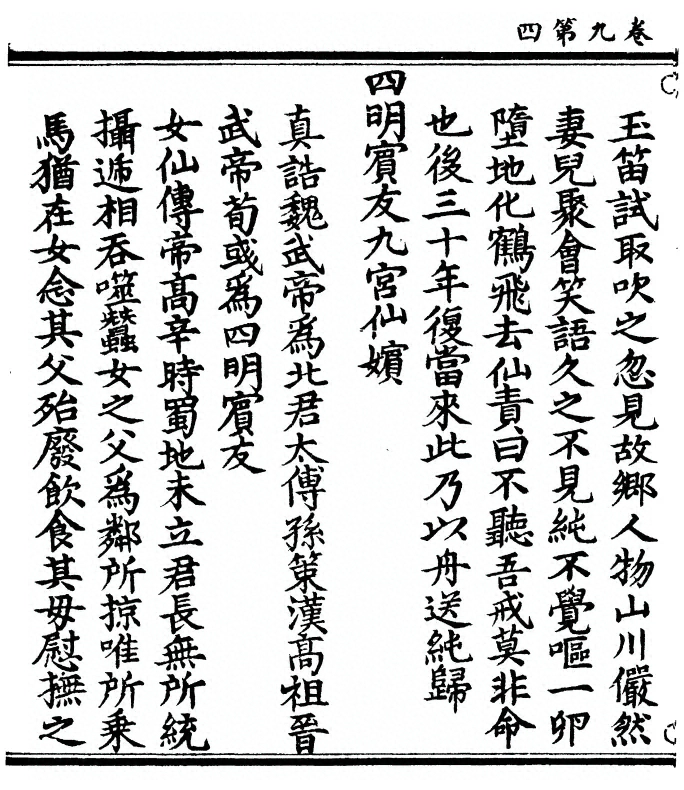 卷九第四
玉笛試取吹之忽見故鄉人物山川儼然
妻兒聚會笑語久之不見純不覺嘔一卵
墮地化鶴飛去仙責曰不聽吾戒莫非命
也後三十年復當來此乃以舟送純歸
四明賓友九宮仙嬪
真誥魏武帝為北君太傅孫策漢高祖晉
武帝荀彧為四明賓友
女仙傳帝高辛時蜀地未立君長無所統
攝遞相吞噬蠶女之父為鄰所掠唯所乘
馬猶在女念其父殆廢飲食其母慰撫之